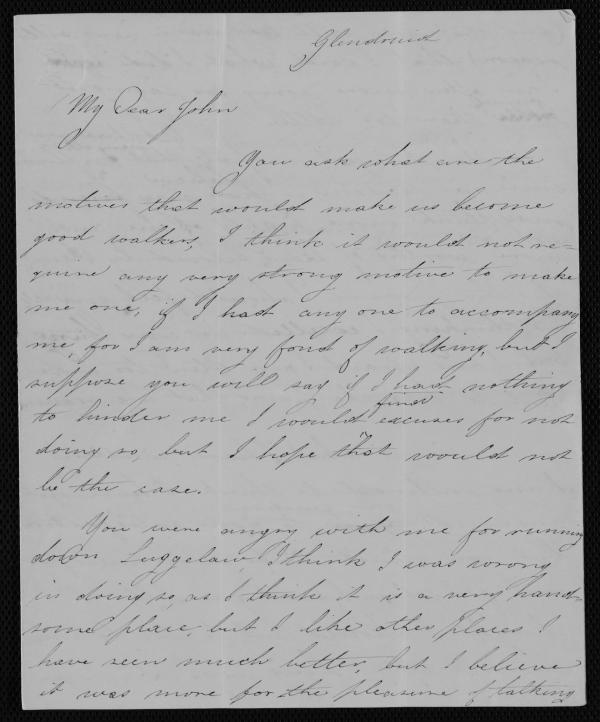 Glendruid
My Dear John
You ask what are the
motives that would make us become
good walkers, I think it would not re-
quire any very strong motive to make
me one, if I had any one to accompany
me, for I am very fond of walking, but I
suppose you will say if I had nothing
to hinder me I would find excuses for not
doing so, but I hope that would not
be the case.
You were angry with me for running
down Luggelaw, I think I was wrong
in doing so, as I think it is a very hand-
some place, but I like other places I
have seen much better, but I believe
it was more for the pleasure of talking